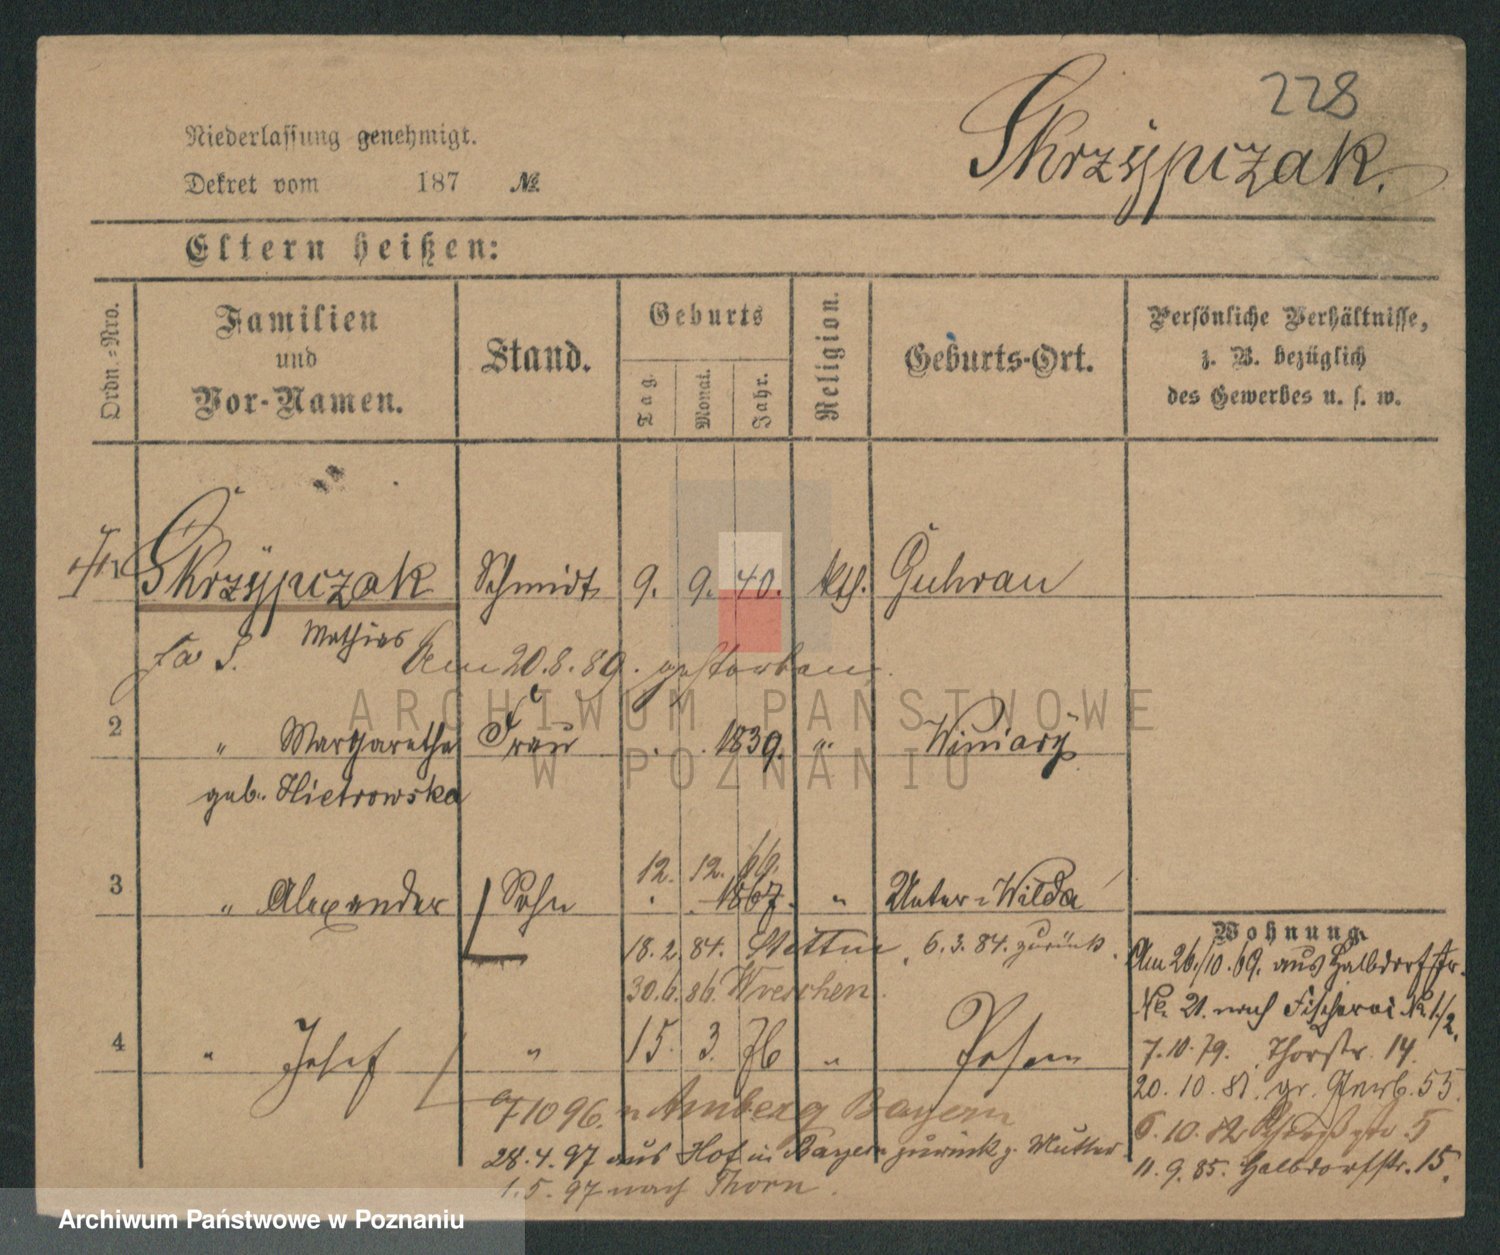 228
Skrzypczak.
Niederlassung genehmigt.
Dekret vom 187 №
Eltern heißen:
Ordn.=Nro.
Familien
und
Vor-Namen.
Stand.
Geburts
Tag.
Monat.
Jahr.
Religion.
Geburts-Ort.
Persönliche Verhältnisse,
z. B. bezüglich
des Gewerbes u. s. w.
Skrzypczak Schmidt 9. 9. 40. kth. Guhrau
Mathias
Am 20.8.89. gestorben.
2 " Margaretha Frau . . 1839. " Winiary
geb. Hietrowska
12. 12. 66.
3 " Alexander Sohn . . 1867. " Unter-Wilda
18.2.84. Stettin, 6.3.84. zurück.
30.6.86. Wreschen.
4 " Josef " 15. 3. 76 " Posen
71096. n Amberg Bayern
28.4.97 aus Hof in Bayern zurück z. Mutter
1.5.97 nach Thorn.
Wohnung.
Am 26/10.69. aus Halbdorfstr.
No. 21. nach Fischerei No. 1/2.
7.10.79. Thorstr. 14.
20.10.81. gr. Gerb. 55.
6.10.82 5
11.9.85. Halbdorfstr. 15.
ARCHIWUM PAŃSTWOWE
W POZNANIU
Archiwum Państwowe w Poznaniu